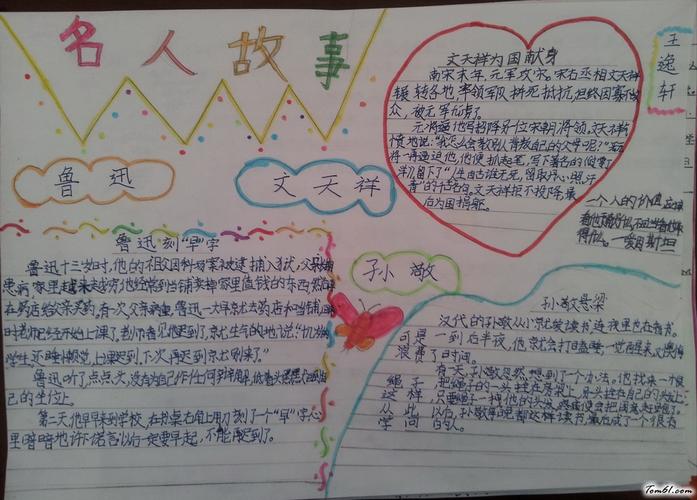 名人故事
王逸轩
鲁迅
文天祥
孙敬
文天祥为国献身
南宋末年,元军攻宋,宋右丞相文天祥
辗转各地,率领军队拼死抵抗,但终因寡不敌
众,被元军俘虏了。
元将逼他写招降另一位宋朝将领,文天祥愤
愤地说:"我怎么会教别人背叛自己的父母呢?"
将一再逼迫他,他便抓起笔,写下著名的《过零丁
洋》,留下了"人生自古谁无死,留取丹心照汗
青"的千古名句,文天祥拒不投降,最
后为国捐躯。
一个人的价值,应该
看他贡献什么,不应当看他取
得什么。——爱因斯坦
鲁迅刻"早"字
鲁迅十三岁时,他的祖父因科场案被逮捕入狱,父亲长期
患病,家里越来越穷,他经常到当铺卖掉家里值钱的东西,然后
在药店给父亲买药,有一次,父亲病重,鲁迅一大早就去药店和当铺,回来
时老师已经开始上课了,老师看见他迟到了,就生气的地说:"十几岁的
学生,还睡懒觉,上课迟到,下次再迟到就别来了。"
鲁迅听了,点点头,没有为自己作任何争辩,低着头默默回到自
己的坐位上。
第二天他早早来到学校,在书桌右角上用刀刻了一个"早"字,心
里暗暗地许下诺言:以后一定要早起,不能再迟到了。
孙敬悬梁
汉代的孙敬从小就爱读书,连夜里也在看书。
可是一到后半夜,他就会打瞌睡,一觉醒来,又懊悔
浪费了时间。
有一天,孙敬忽然想到了一个办法。他找来一根
绳子,把绳子的一头拴在房梁上,另一头拴在自己的头发上,
这样,只要绳子一扯他的头发,疼痛便会把困意赶跑了。
从此以后,孙敬每晚都这样读书,最后成了一个很有
学问的人。
Tom61.com